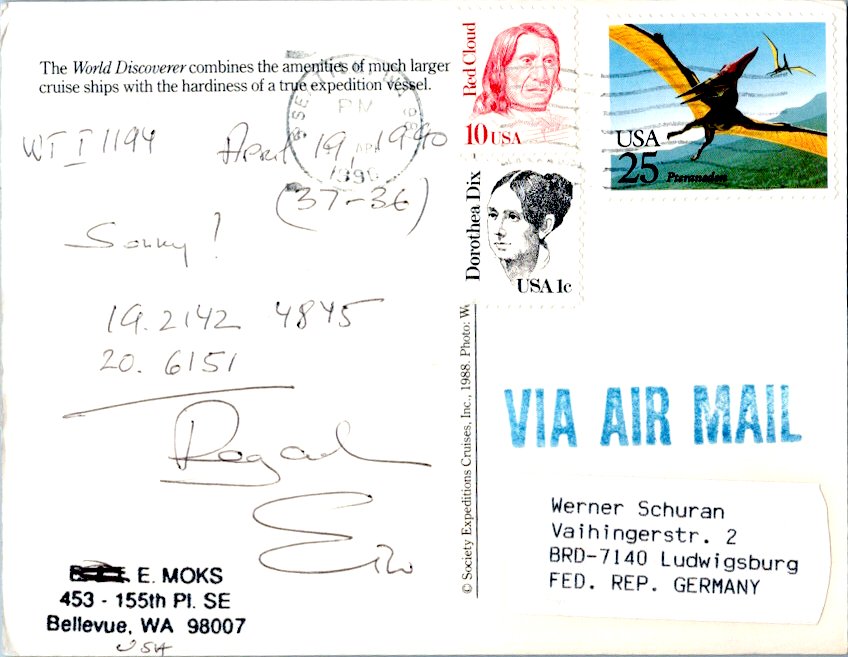 The World Discoverer combines the amenities of much larger
cruise ships with the hardiness of a true expedition vessel.
WT I 1194 April 19, 1990
(37-36)
Sorry!
19. 2142 4845
20. 6151
E. MOKS
453 - 155th Pl. SE
Bellevue, WA 98007
USA
PM
1990
Red Cloud
10 USA
Dorothea Dix
USA 1c
USA
25 Pteranodon
© Society Expeditions Cruises, Inc., 1988. Photo:
VIA AIR MAIL
Werner Schuran
Vaihingerstr. 2
BRD-7140 Ludwigsburg
FED. REP. GERMANY